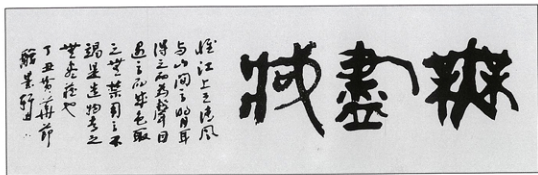 無盡藏
惟江上之清風
与山间之明月耳
得之而為聲目
遇之而成色取
之無禁用之不
竭是造物者之
無盡藏也
丁丑黄華節